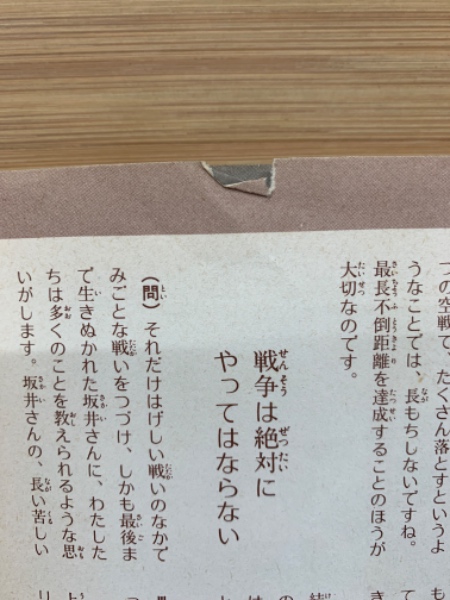 つの空戦で、たくさん落とすというよ
うなことでは、長もちしないですね。
最長不倒距離を達成することのほうが
大切なのです。
戦争は絶対に
やってはならない
（問）それだけはげしい戦いのなかで
みごとな戦いをつづけ、しかも最後ま
で生きぬかれた坂井さんに、わたした
ちは多くのことを教えられるような思
いがします。坂井さんの、長い苦しい